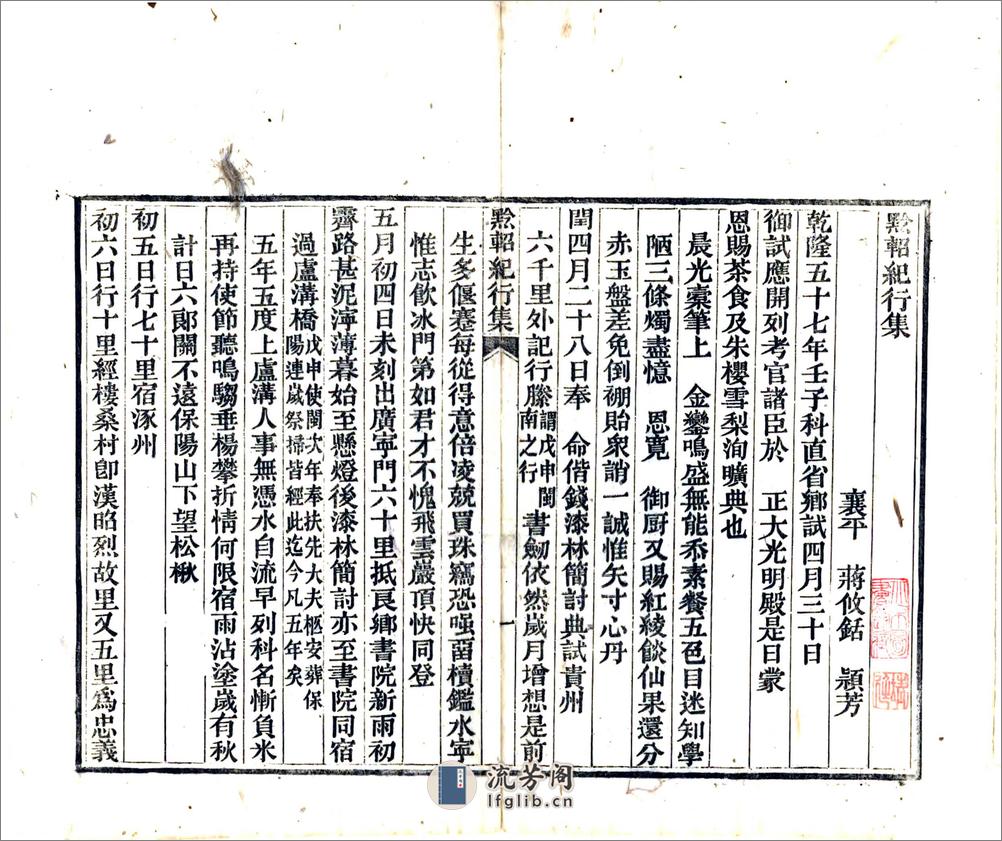 黔軺紀行集
襄平　蔣攸銛　頴芳
乾隆五十七年壬子科直省鄉試四月三十日
御試應開列考官諸臣於　正大光明殿是日蒙
恩賜茶食及朱櫻雪梨洵曠典也
晨光橐筆上　金鑾鳴盛無能忝素餐五色目迷知學
陋三條燭盡憶　恩寬　御厨又賜紅綾餤仙果還分
赤玉盤差免倒繃貽衆誚一誠惟矢寸心丹
閏四月二十八日奉　命偕錢漆林簡討典試貴州
六千里外記行縢謂戊申閩南之行書劒依然歲月增想是前
黔軺紀行集
一
生多偃蹇每從得意倍凌兢買珠竊恐强畱櫝鑑水寧
惟志飮冰門第如君才不愧飛雲巖頂快同登
五月初四日未刻出廣寧門六十里抵良鄉書院新雨初
霽路甚泥濘薄暮始至懸燈後漆林簡討亦至書院同宿
過盧溝橋戊申使閩次年奉扶先大夫柩安葬保陽連歲祭掃皆經此迄今凡五年矣
五年五度上盧溝人事無憑水自流早列科名慚負米
再持使節聽鳴騶垂楊攀折情何限宿雨沾塗歲有秋
計日六郎關不遠保陽山下望松楸
初五日行七十里宿涿州
初六日行十里經樓桑村卽漢昭烈故里又五里爲忠義
流芳阁
lfglib.cn